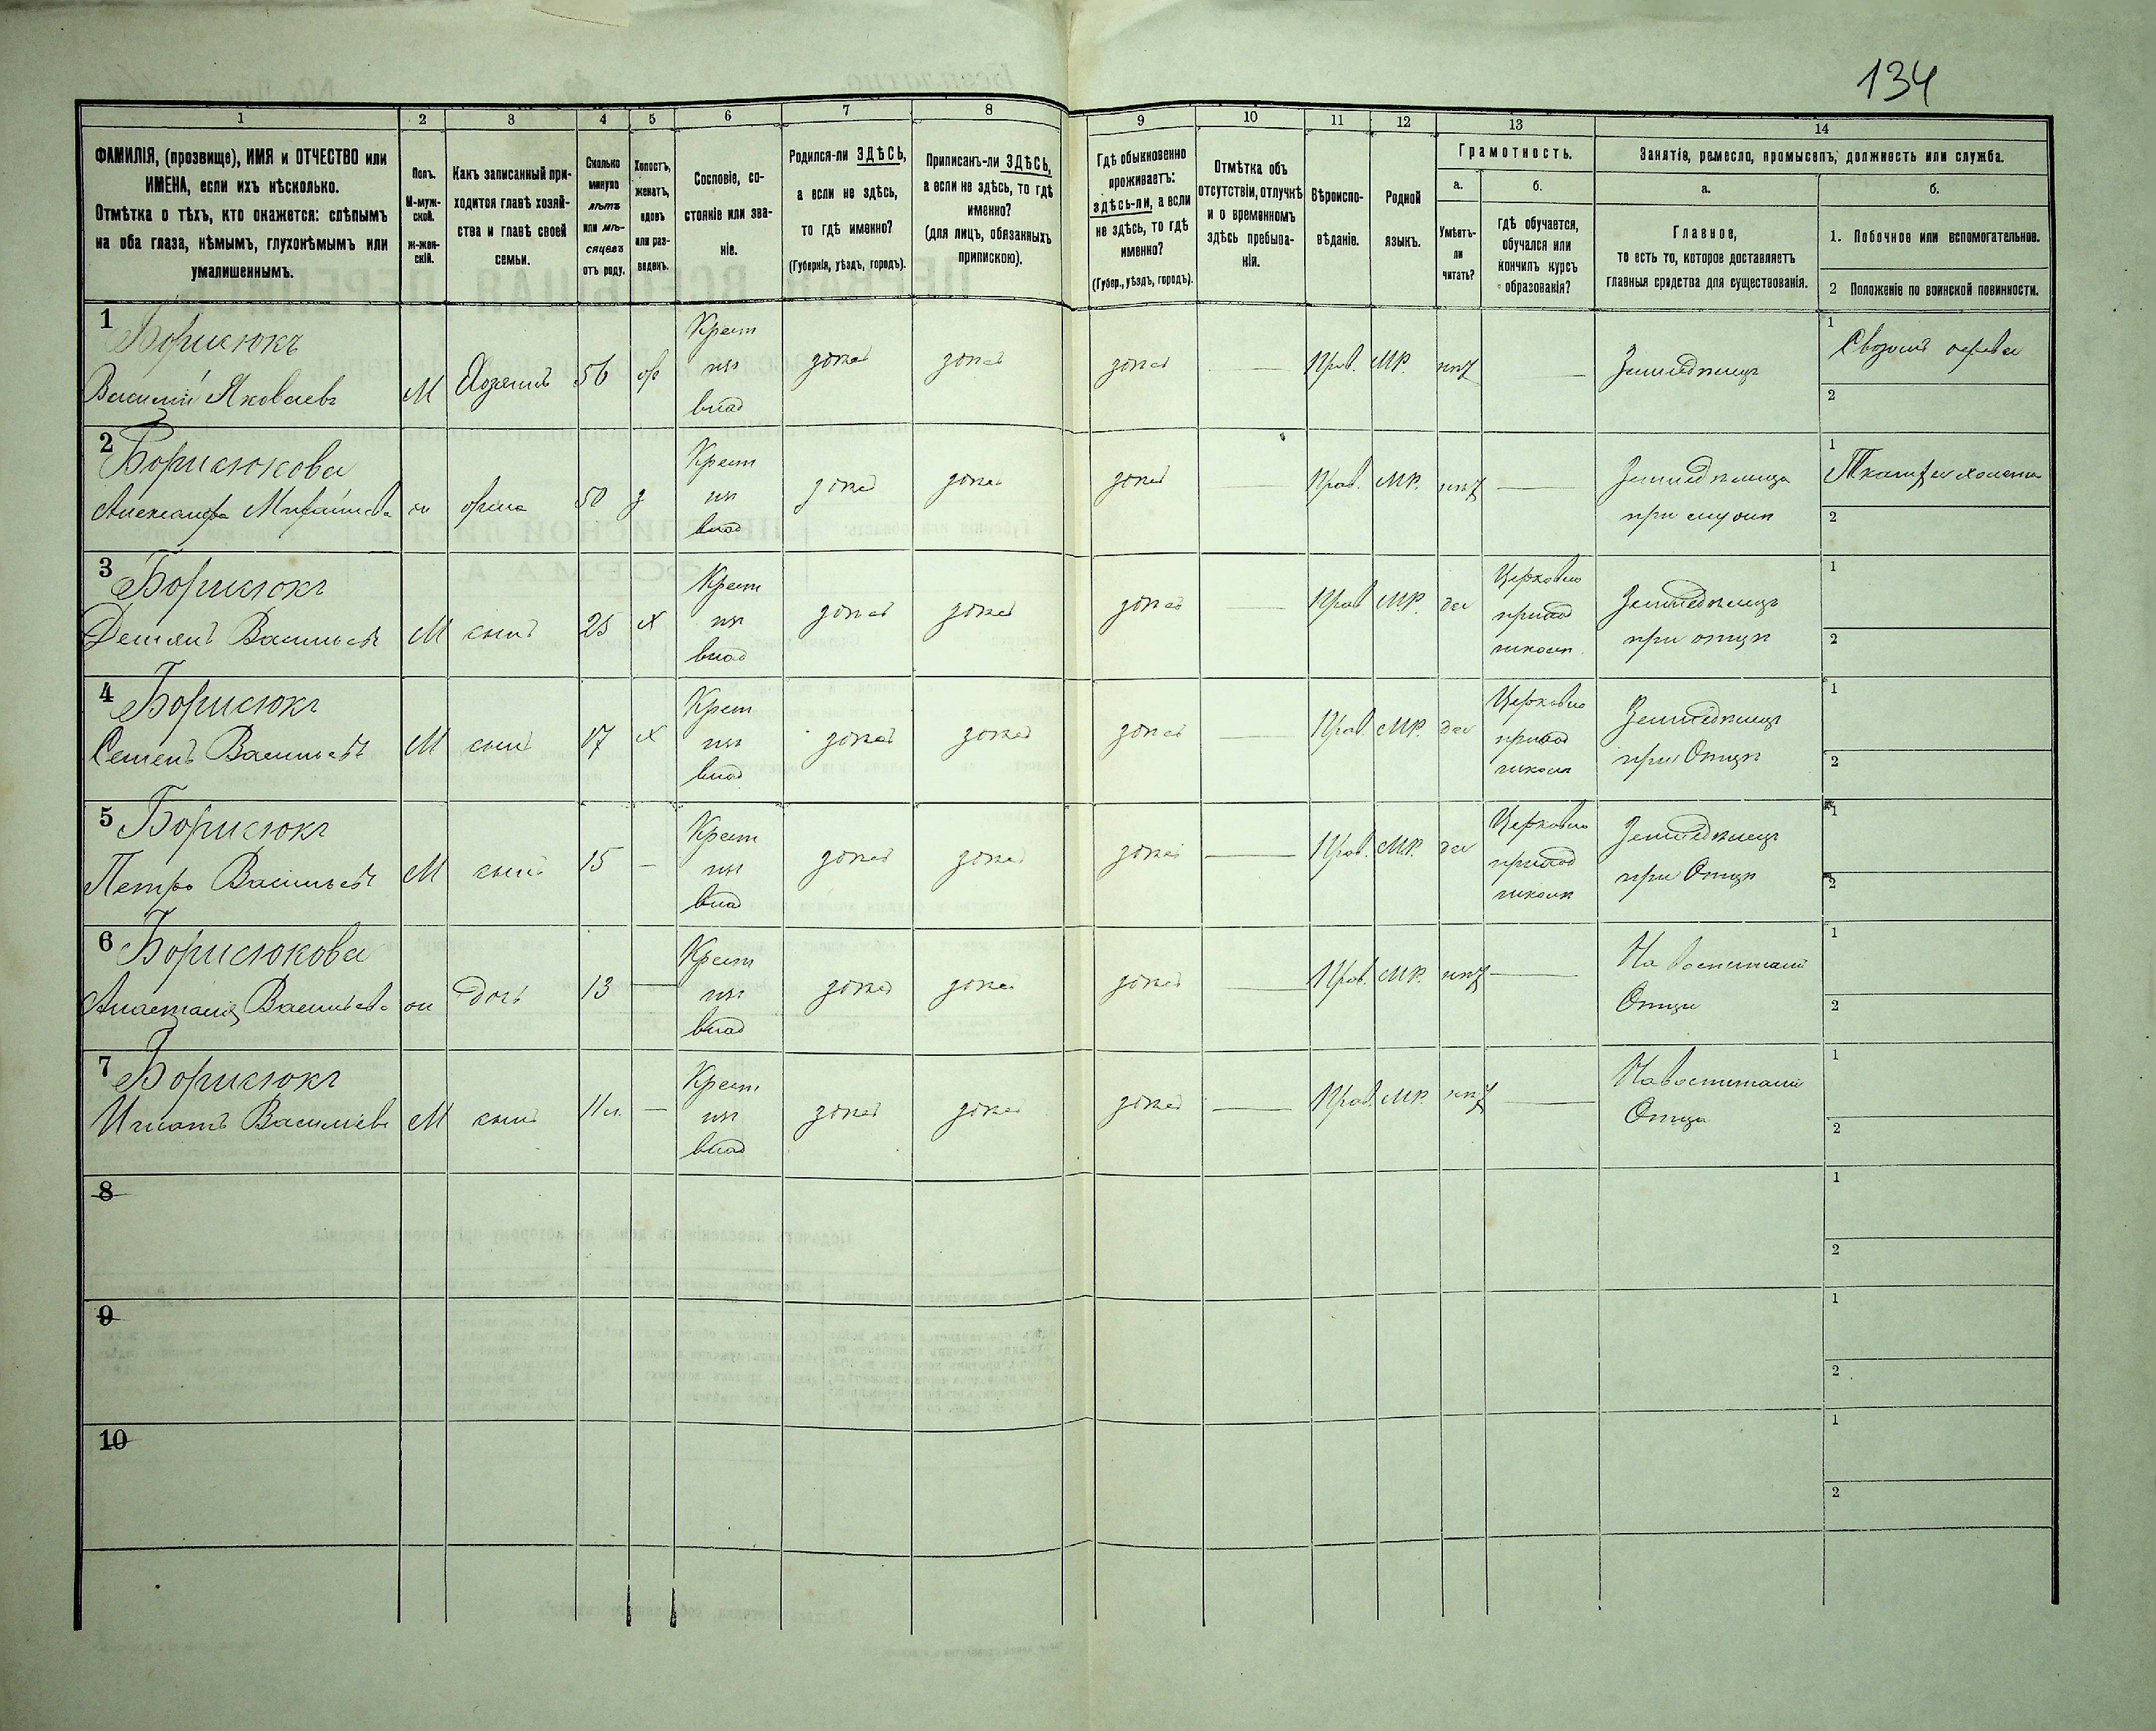 134
1 2 3 4 5 6 7 8 9 10 11 12 13 14
ФАМИЛІЯ, (прозвище), ИМЯ и ОТЧЕСТВО или
ИМЕНА, если ихъ нѣсколько.
Отмѣтка о тѣхъ, кто окажется: слѣпымъ
на оба глаза, нѣмымъ, глухонѣмымъ или
умалишеннымъ.
Полъ.
М-муж-
ской.
Ж-жен-
скій.
Какъ записанный при-
ходится главѣ хозяй-
ства и главѣ своей
семьи.
Сколько
минуло
лѣтъ
или мѣ-
сяцевъ
отъ роду.
Холостъ,
женатъ,
вдовъ
или раз-
веденъ.
Сословіе, со-
стояніе или зва-
ніе.
Родился-ли ЗДѢСЬ,
а если не здѣсь,
то гдѣ именно?
(Губернія, уѣздъ, городъ).
Приписанъ-ли ЗДѢСЬ,
а если не здѣсь, то гдѣ
именно?
(для лицъ, обязанныхъ
припискою).
Гдѣ обыкновенно
проживаетъ:
здѣсь-ли, а если
не здѣсь, то гдѣ
именно?
(Губер., уѣздъ, городъ).
Отмѣтка объ
отсутствіи, отлучкѣ
и о временномъ
здѣсь пребыва-
ніи.
Вѣроиспо-
вѣданіе.
Родной
языкъ.
Грамотность.
а.
Умѣетъ-
ли
читать?
б.
гдѣ обучается,
обучался или
кончилъ курсъ
образованія?
Занятіе, ремесло, промыселъ, должность или служба.
а.
Главное,
то есть то, которое доставляетъ
главныя средства для существованія.
б.
1. Побочное или вспомогательное.
2 Положеніе по воинской повинности.
1
Борисюкъ
Василій Яковлевъ
М Хозяинъ 56
Крест
изъ
влад
здѣсь здѣсь здѣсь — Прав. МР. нѣтъ —
Земледѣлецъ
1
2
2
Борисюкова
Александра
жена 50
Крест
изъ
влад
здѣсь здѣсь здѣсь — Прав. МР. нѣтъ —
Земледѣлица
при мужѣ
1
2
3
Борисюкъ
Демянъ Васильевъ
М сынъ 25 х
Крест
изъ
влад
здѣсь здѣсь здѣсь — Прав МР. да
Церковно
приход
школѣ
Земледѣлецъ
при отцѣ
1
2
4
Борисюкъ
Семенъ Васильевъ
М сынъ 17 х
Крест
изъ
влад
здѣсь здѣсь здѣсь — Прав МР. да
Церковно
приход
школѣ
Земледѣлецъ
при Отцѣ
1
2
5
Борисюкъ
Петро Васильевъ
М сынъ 15 —
Крест
изъ
влад
здѣсь здѣсь здѣсь — Прав. МР. да
Церковно
приход
школѣ
Земледѣлецъ
при Отцѣ
1
2
6
Борисюкова
Анастасія Васильева
ж дочь 13 —
Крест
изъ
влад
здѣсь здѣсь здѣсь — Прав. МР. нѣтъ —
На воспитаніи
Отца
1
2
7
Борисюкъ
Игнатъ Василіевъ
М сынъ —
Крест
изъ
влад
здѣсь здѣсь здѣсь — Прав. МР. нѣтъ —
На воспитаніи
Отца
1
2
8
1
2
9
1
2
10
1
2